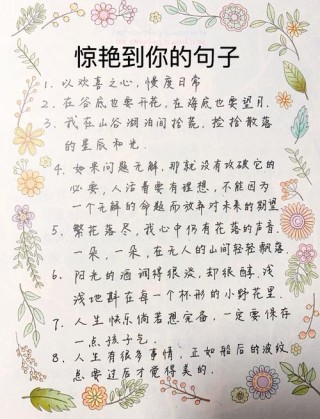 惊艳到你的句子
1. 以欢喜之心,慢度日常
2. 在谷底也要开花,在海底也要望月.
3. 我在山谷湖泊间拾荒,捡拾散落
的星辰和光.
4. 如果问题无解,那就没有攻破它的
必要,人活着要有理想,不能因为
一个无解的命题而放弃对未来的期望
5. 繁花落尽,我心中仍有花落的声音.
一朵,一朵,在无人的山间轻轻飘落.
6. 阳光的酒调得很淡,却很醇,浅
浅地斟在每一个杯形的小野花里.
7. 人生快乐倘若想完备,一定要保存
一点孩子气.
8. 人生有很多事情,正如船后的波纹
总要过后才觉得美的.